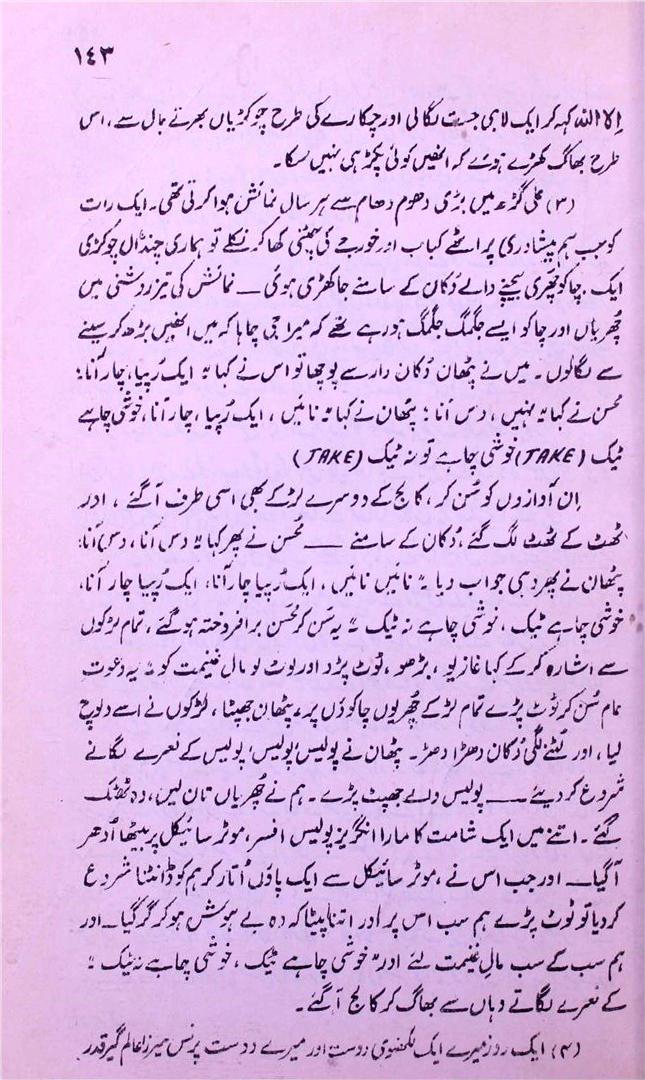 ۱۴۳
اِلا اللہ کہہ کر ایک لابی جست لگائی اور چکارے کی طرح چوکڑیاں بھرتے ہال سے، اس
طرح بھاگ کھڑے ہوئے کہ انھیں کوئی پکڑ ہی نہیں سکا۔
(۳) علی گڑھ میں بڑی دھوم دھام سے ہر سال نمائش ہوا کرتی تھی۔ ایک رات
کو جب ہم پراٹھے کباب اور خورجے کی چٹنی کھا کر نکلے تو ہماری چنڈال چوکڑی
ایک، چاکو چھری بیچنے والے دُکان کے سامنے جا کھڑی ہوئی ــ نمائش کی تیز روشنی میں
چُھریاں اور چاکو ایسے جگمگ جگمگ ہو رہے تھے کہ میرا جی چاہا کہ میں انھیں بڑھ کر سینے
سے لگالوں۔ میں نے پٹھان دُکان دار سے پوچھا تو اس نے کہا "ایک رُپیا، چار آنا"؛
محسن نے کہا "نہیں، دس آنا"؛ پٹھان نے کہا "نائیں، ایک رُپیا، چار آنا، خوشی چاہے
ٹیک (TAKE) خوشی چاہے تو نہ ٹیک (TAKE)
اِن آوازوں کو سُن کر، کالج کے دوسرے لڑکے بھی اسی طرف آگئے، اور
ٹھٹ کے ٹھٹ لگ گئے، دُکان کے سامنے ــــ محسن نے پھر کہا "دس آنا، دس آنا"؛
پٹھان نے پھر وہی جواب دیا "نائیں نائیں، ایک رُپیا چار آنا، ایک رُپیا چار آنا،
خوشی چاہے ٹیک، خوشی چاہے نہ ٹیک" یہ سُن کر محسن برافروختہ ہو گئے، تمام لڑکوں
سے اشارہ کر کے کہا غازیو، بڑھو، ٹوٹ پڑو اور لوٹ لو مالِ غنیمت کو" یہ دعوت
عام سُن کر ٹوٹ پڑے تمام لڑکے چُھریوں چاکوؤں پر، پٹھان جھپٹا، لڑکوں نے اسے دبوچ
لیا، اور لُٹنے لگی دُکان دھڑا دھڑ۔ پٹھان نے پولیس، پولیس، پولیس کے نعرے لگانے
شروع کر دیئے ــــ پولیس والے جھپٹ پڑے۔ ہم نے چُھریاں تان لیں، وہ ٹھٹک
گئے۔ اتنے میں ایک شامت کا مارا انگریز پولیس افسر، موٹر سائیکل پر بیٹھا اُدھر
آگیا ــ اور جب اس نے، موٹر سائیکل سے ایک پاؤں اُتار کر ہم کو ڈانٹنا شروع
کر دیا تو ٹوٹ پڑے ہم سب اس پر اور اتنا پیٹا کہ وہ بے ہوش ہو کر گر گیا ــ اور
ہم سب کے سب مالِ غنیمت لئے اور "خوشی چاہے ٹیک، خوشی چاہے نہ ٹیک"
کے نعرے لگاتے وہاں سے بھاگ کر کالج آگئے۔
(۴) ایک روز میرے ایک لکھنوی دوست اور میرے دوست پرنس میرزا عالم گیر قدر